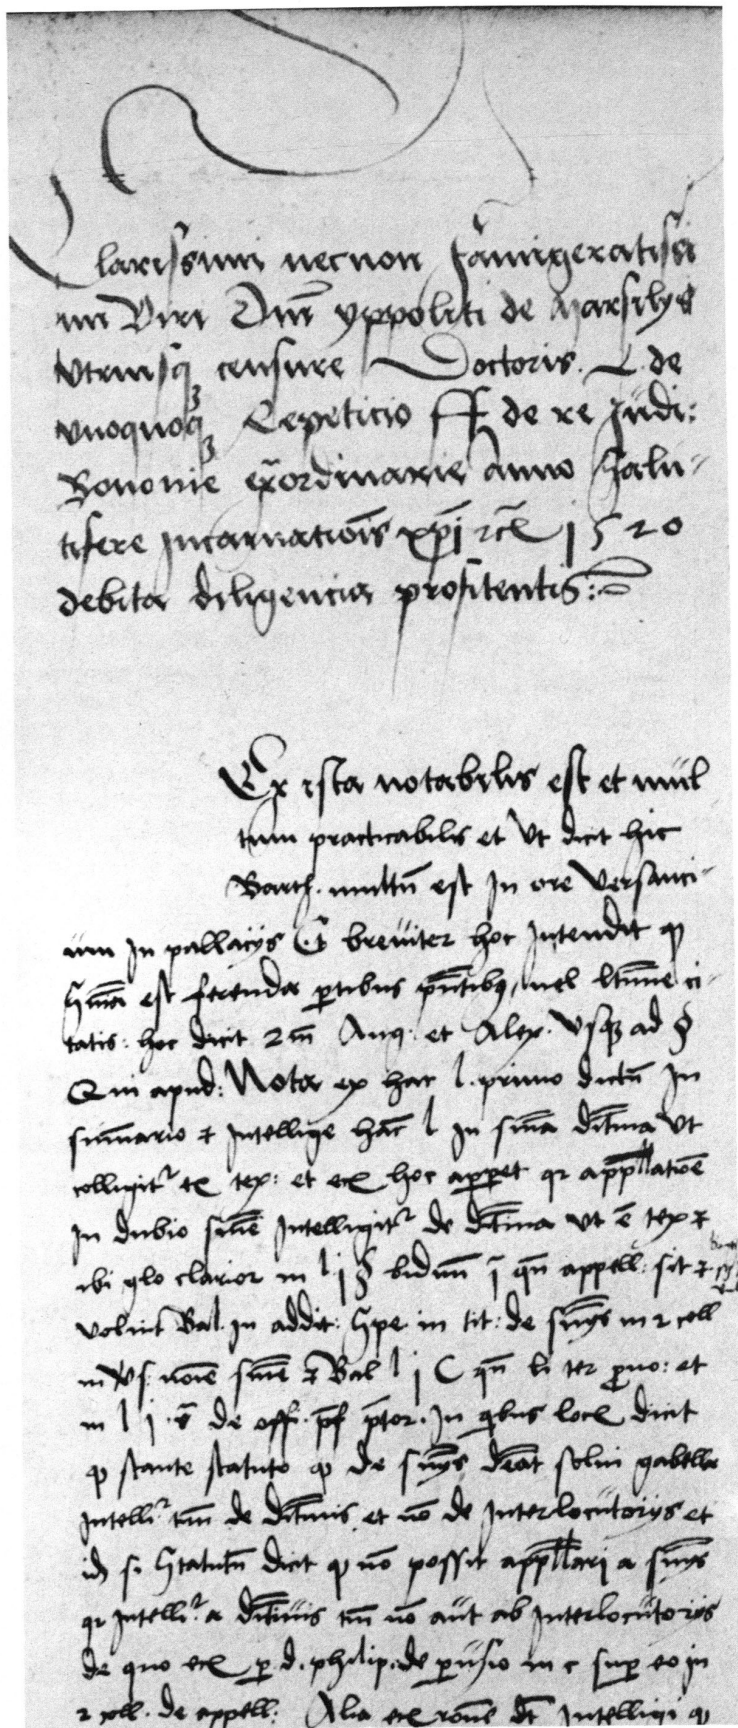 Clarissimi necnon famigeratissi
mi Viri Dnī yppoliti de Marsilijs
Vtriusqʒ censure Doctoris. L. de
vnoquoqʒ Repeticio ff de re Judi:
Bononie ex̄ordinarie Anno Salu-
tifere Incarnatiōis xp̄i rc̄ 1520
debita diligencia profitentis:
Lex ista notabilis est et mul
tum practicabilis et Vt dicit hic
Bart. multū est In ore Versanci-
um In pallacijs Et breviter hoc Intendit ꝙ
Sniā est ferenda ꝑtibus pn̄tibꝰ, vel ltīme ci-
tatis: hoc dicit 2m̄ Ang. et Alex. Vsqʒ ad §
Qui apud: Nota ex hac l. primo dictū In
summario et Intellige hāc l In sniā dītīua Vt
colligitʳ ex tex: et ex hoc apparet qr appellatiōe
In dubio sniē Intelligitʳ de dītīua Vt ē tex et
ibi glo clarior in l. j § biduū ī qn̄ appell: sit et
voluit Bal. In addit: Spe in tit: de snījs in 2 coll
in Vs: noīe sniē et Bal l j C qn̄ li ter ꝓuo: et
in l j. § de offi. p̄f p̄tor. In qbus loc dicit
ꝙ stante statuto ꝙ de snījs debeāt solui gabelle
Intelliʳ tm̄ de dītīuis et nō de Interlocutorijs et
id̄ si Statutū dicit ꝙ nō possit appellari a snījs
qr Intelliʳ a dītīuis tm̄ nō aut ab Interlocutorijs
de quo ꝑ d. philip. de perusio in c suꝑ eo In
2 de appell: Alia roē dt̄ Intelligi ꝙ